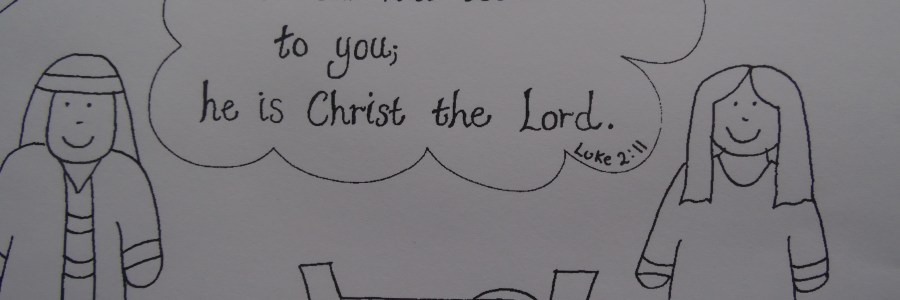 to you;
he is Christ the Lord.
Luke 2:11